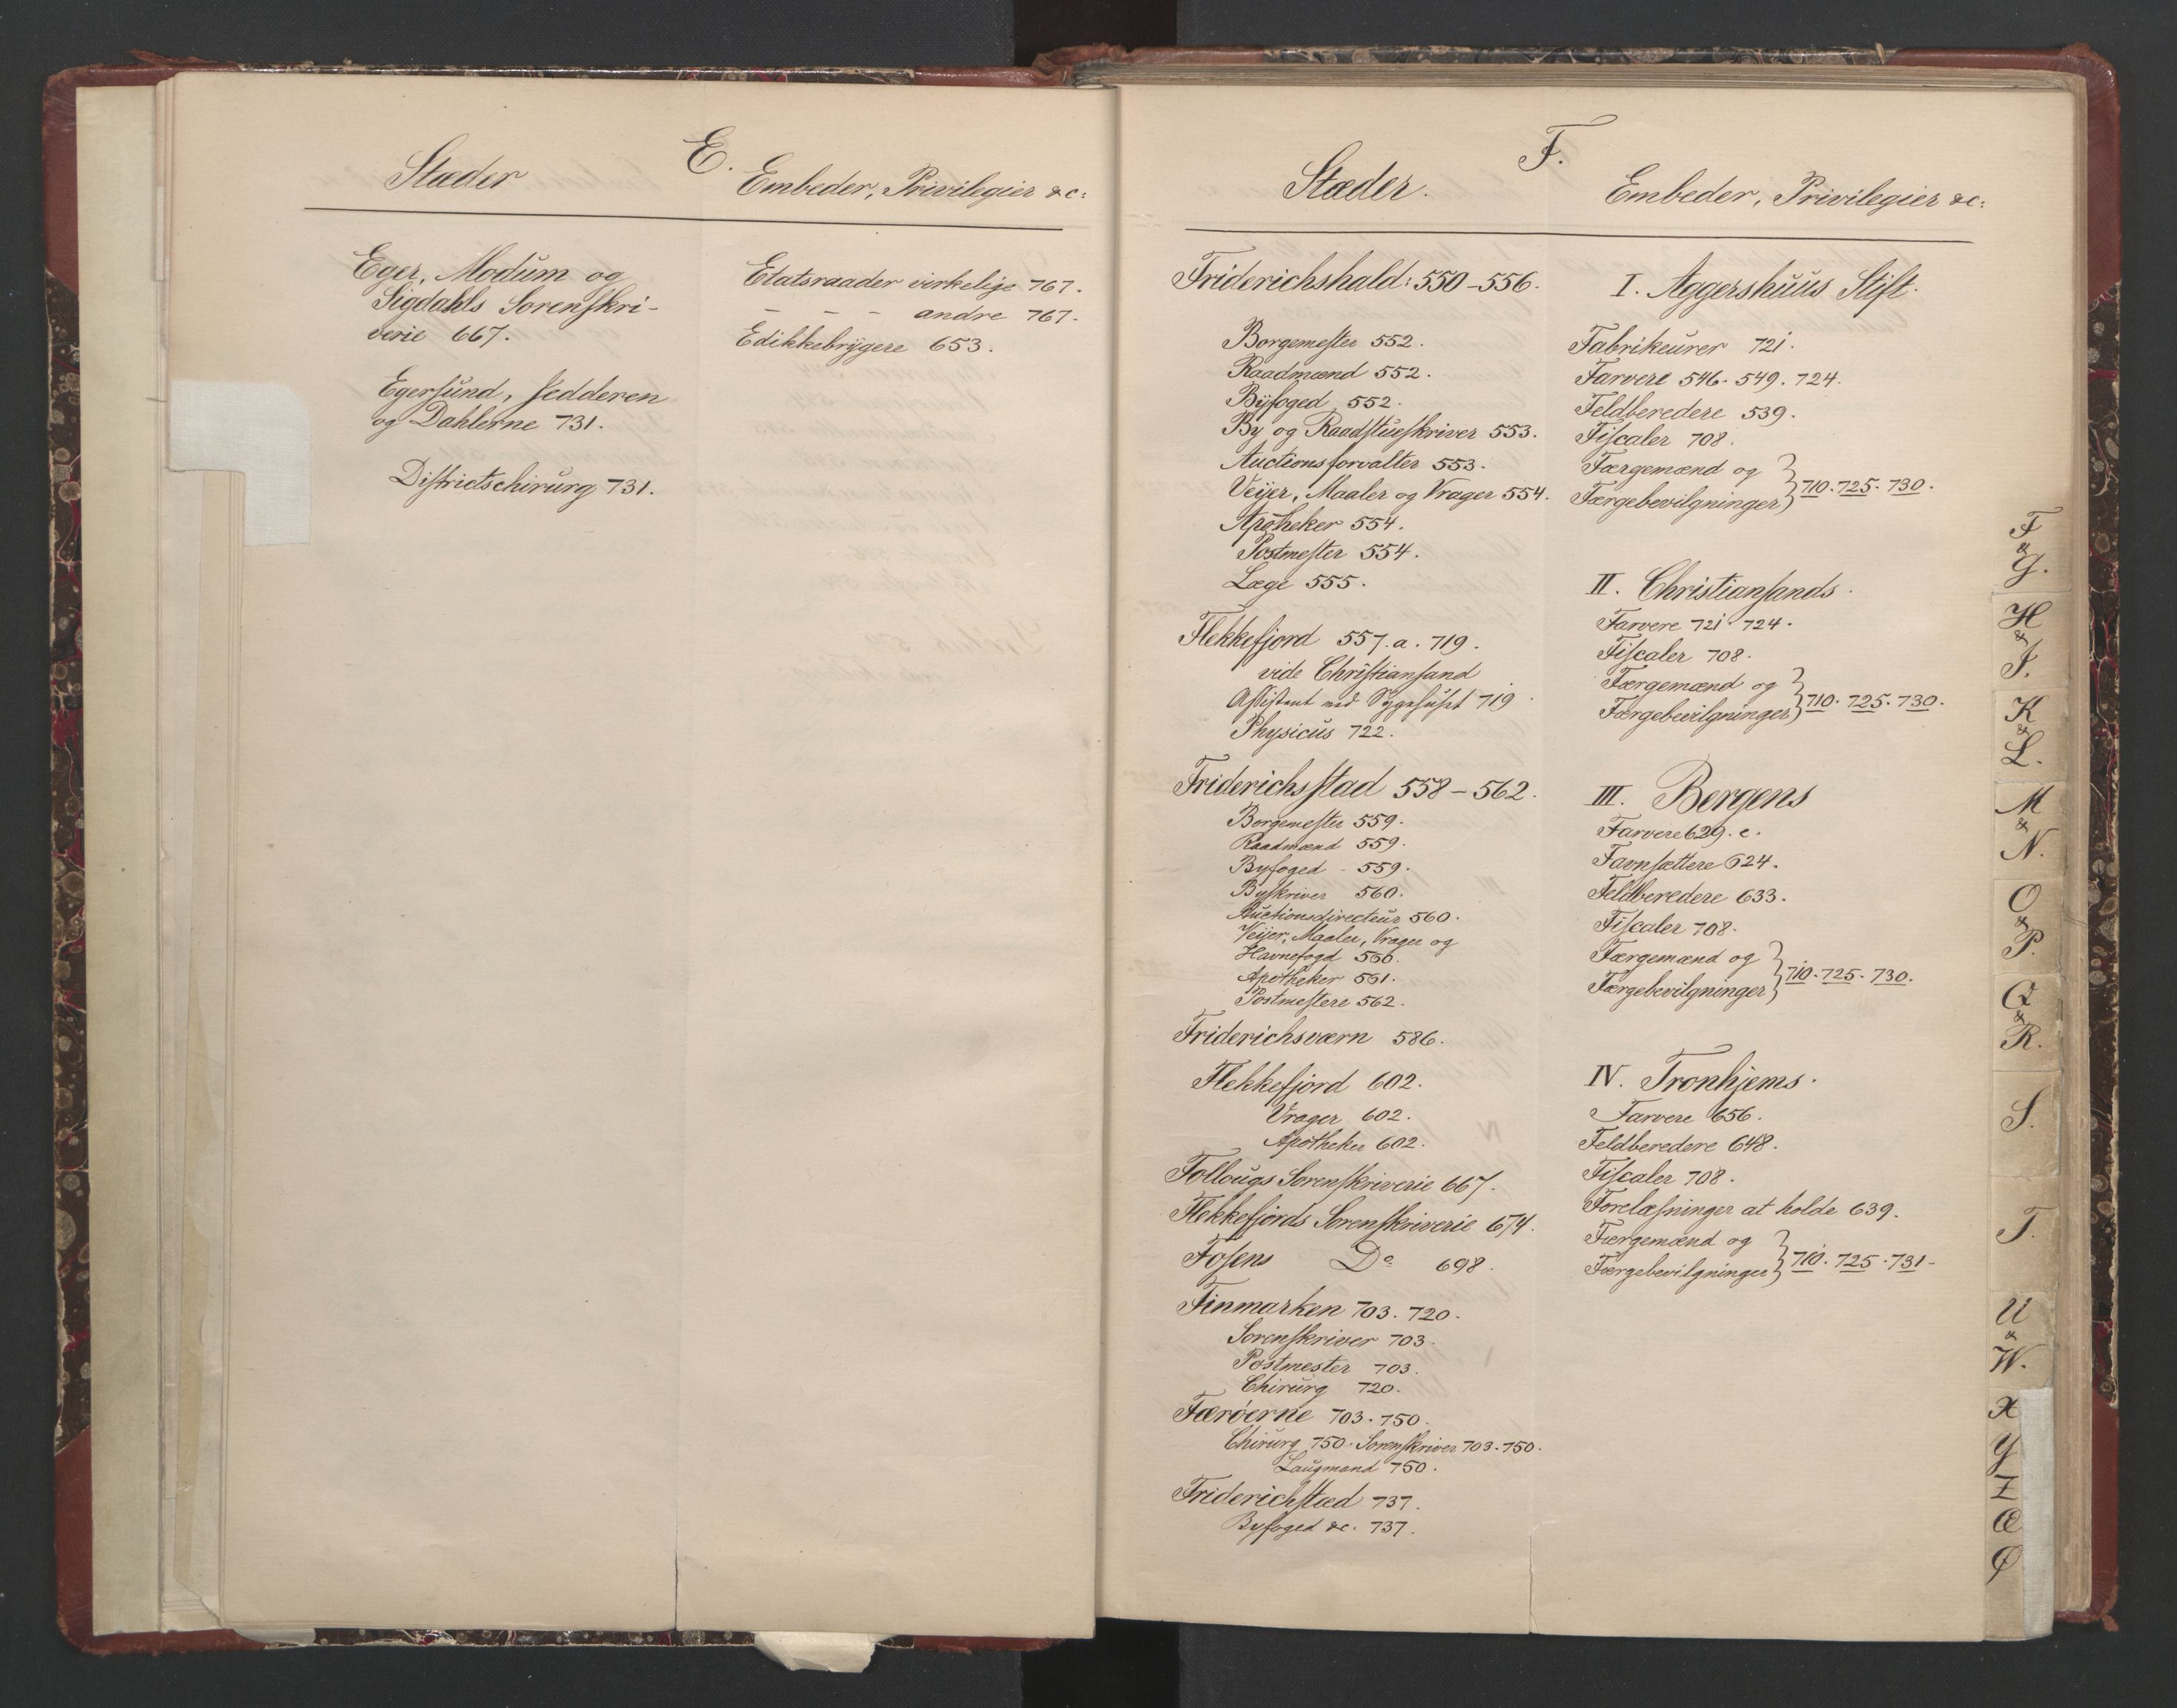 E.
Stæder
Embeder, Privilegier &c:
Eger, Modum og
Sigdahls Sorenskri-
verie 667.
Egersund, Jedderen
og Dahlerne 731.
Districtschirurg 731.
Etatsraader virkelige 767.
- - - andre 767.
Edikkebrÿgere 653.
F.
Stæder.
Embeder, Privilegier &c:
Friderichshald: 550-556.
Borgemester 552.
Raadmænd 552.
Bÿfoged 552.
By og Raadstueskriver 553.
Auctionsforvalter 553.
Veijer, Maaler og Vrager 554.
Apotheker 554.
Postmester 554.
Læge 555.
Flekkefjord 557.a. 719.
vide Christiansand
Assistent ved Sygehuset 719.
Physicus 722.
Friderichsstad 558-562.
Borgemester 559.
Raadmænd 559.
Byfoged - 559.
Byskriver 560.
Auctionsdirecteur 560.
Veijer, Maaler, Vrager og
Havnefogd 560.
Apotheker 561.
Postmestere 562.
Friderichsværn 586.
Flekkefjord 602.
Vrager 602.
Apotheker 602.
Follougs Sorenskriverie 667.
Flekkefjords Sorenskriverie 674.
Fosens Do 698.
Finmarken 703. 720.
Sorenskriver 703.
Postmester 703.
Chirurg 720.
Færöerne 703. 750.
Chirurg 750. Sorenskriver 703. 750.
Laugmand 750.
Friderichstad 737.
Byfoged &c. 737.
I. Aggershuus Stift.
Fabrikeurer 721.
Farvere 546. 549. 724.
Feldberedere 539.
Fiscaler 708.
Færgemænd og
Færgebevilgninger} 710. 725. 730.
II. Christiansands.
Farvere 721. 724.
Fiscaler 708.
Færgemænd og
Færgebevilgninger} 710. 725. 730.
III. Bergens
Farvere 629. c.
Favnsættere 624.
Feldberedere 633.
Fiscaler 708.
Færgemænd og
Færgebevilgninger} 710. 725. 730.
IV. Tronhjems.
Farvere 656.
Feldberedere 648.
Fiscaler 708.
Forelæsninger at holde 639.
Færgemænd og
Færgebevilgninger} 710. 725. 731.
F
&
G.
H
&
I.
K
&
L.
M
&
N.
O
&
P.
Q
&
R.
S.
T.
U
&
W.
X
Y
Z
Æ
Ø